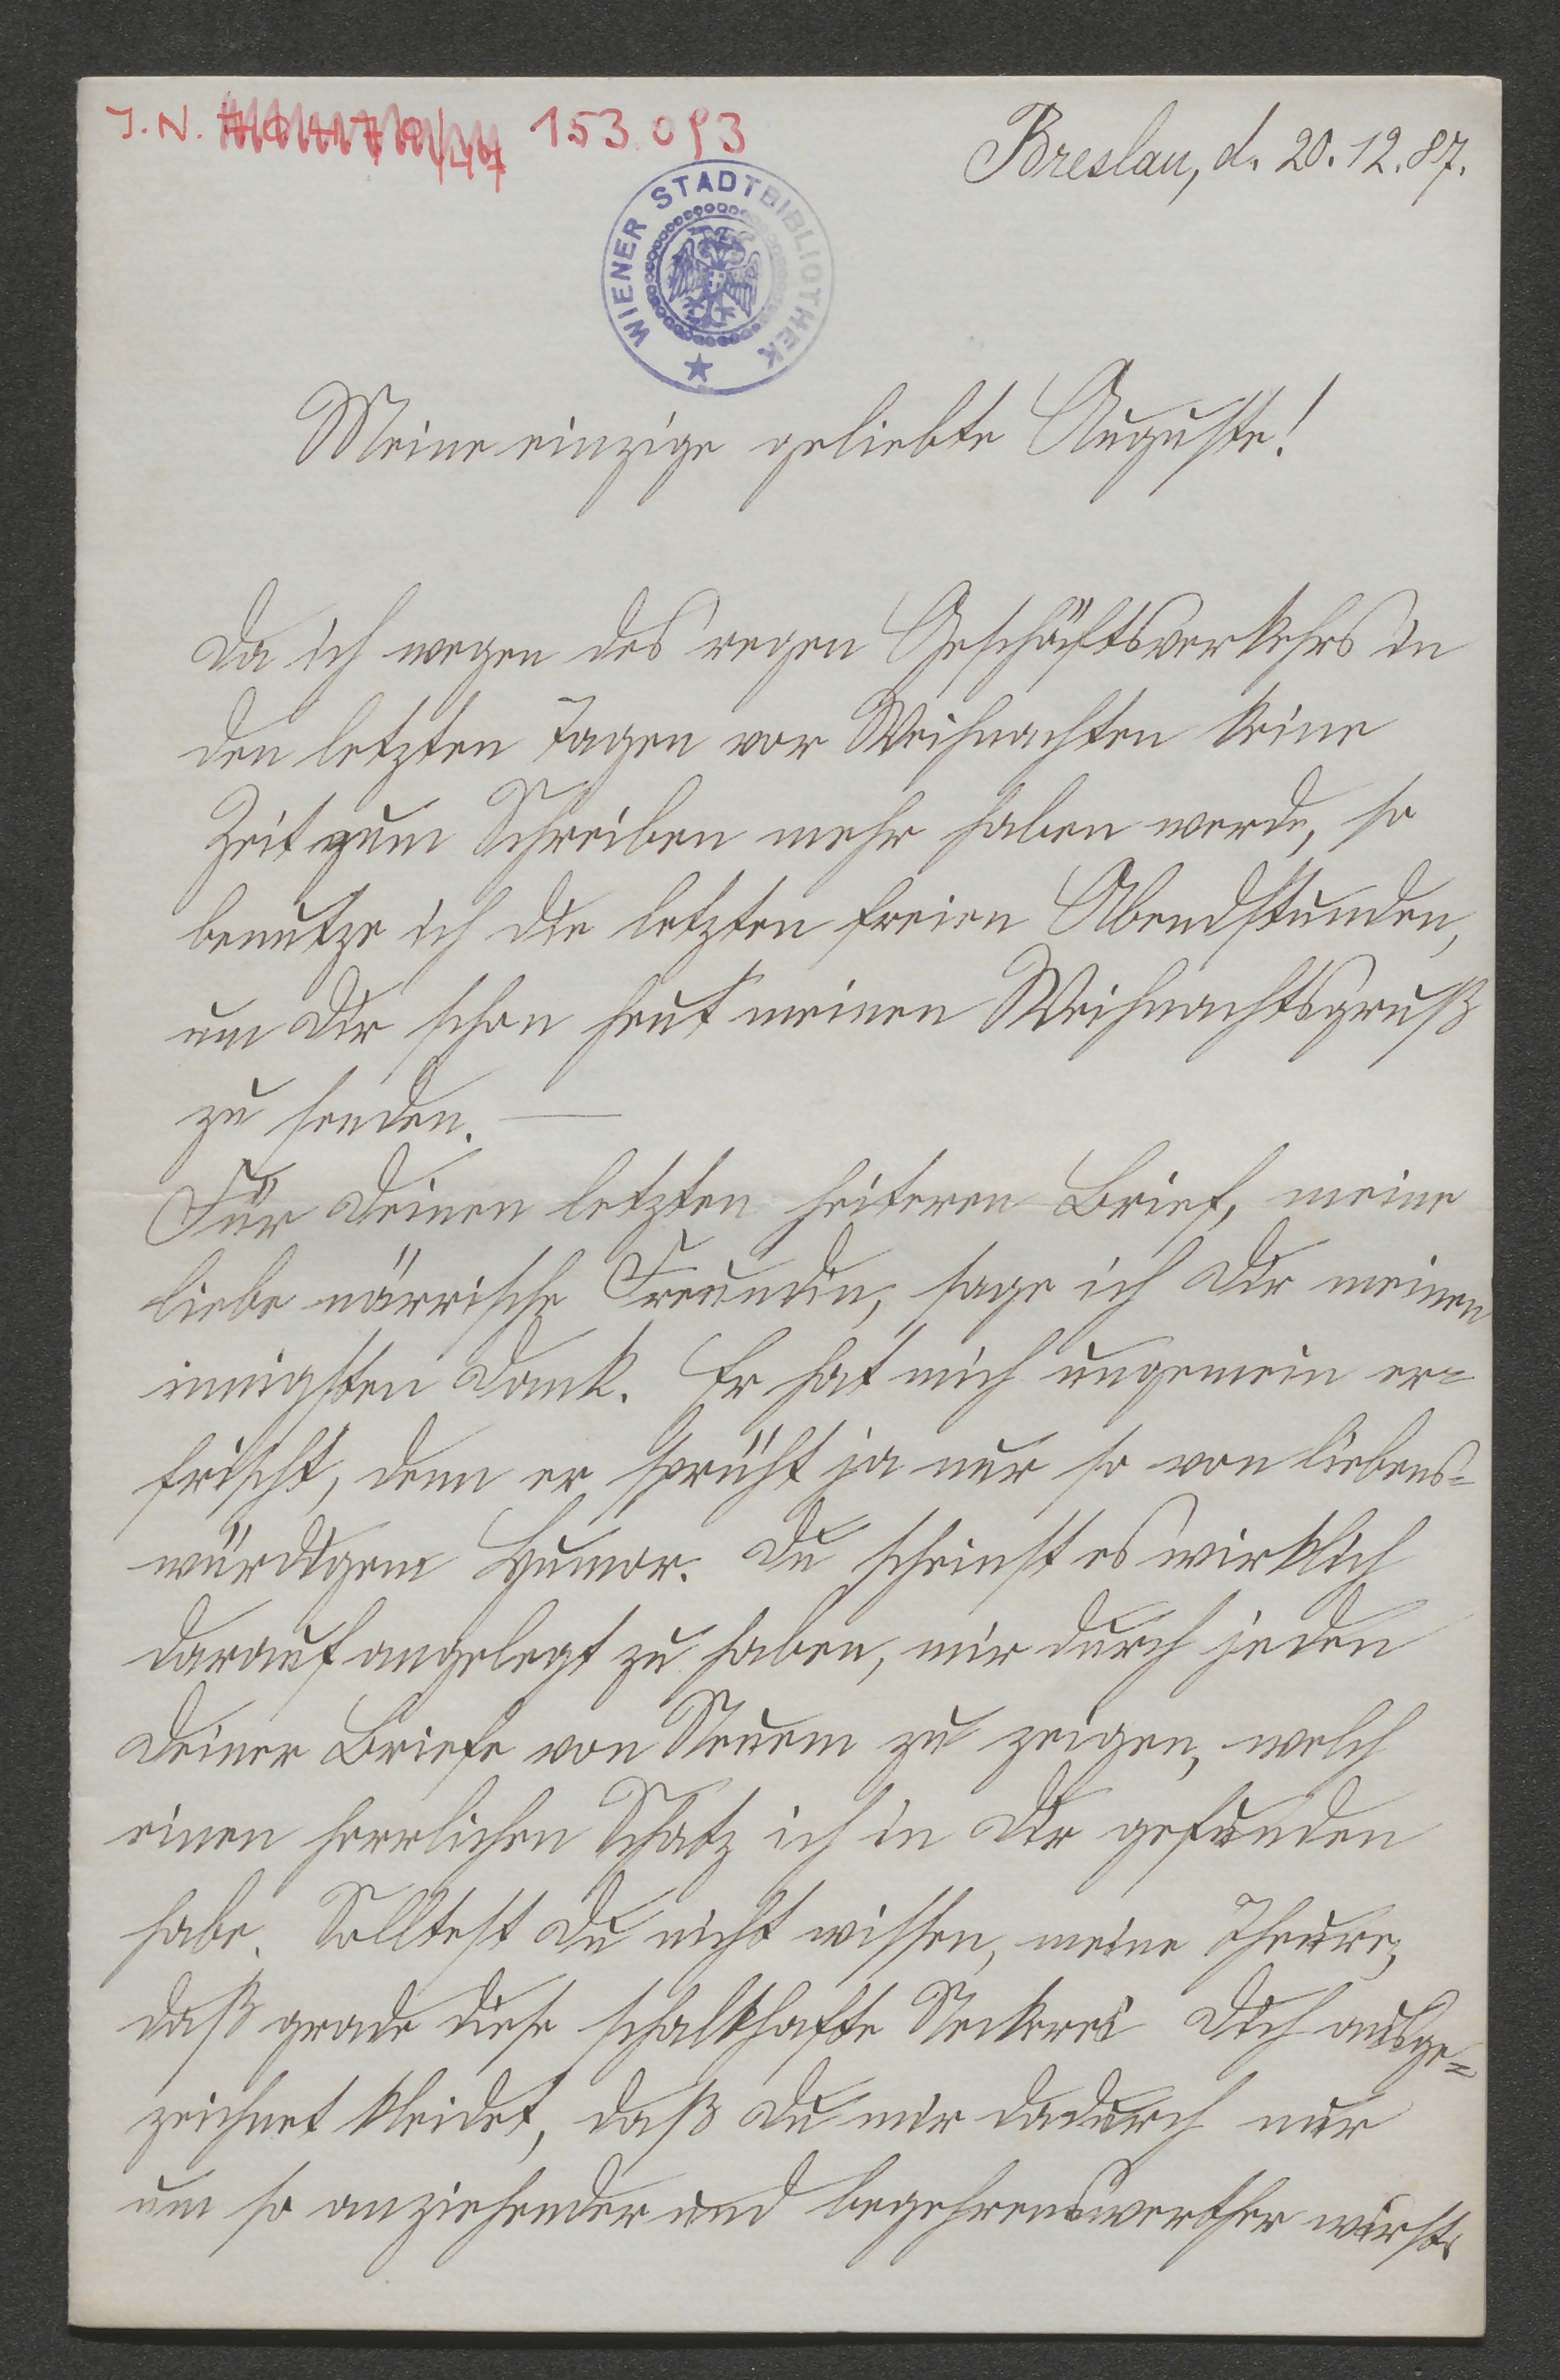 J.N. 153.093
Breslau, d. 20.12.87.
WIENER STADTBIBLIOTHEK
Meine einzige geliebte Auguste!
Da ich wegen des regen Geschäftsverkehrs in
den letzten Tagen vor Weihnachten keine
Zeit zum Schreiben mehr haben werde, so
benutze ich die letzten freien Abendstunden,
um Dir schon heut meinen Weihnachtsgruß
zu senden. —
Für Deinen letzten heiteren Brief, meine
liebe närrische Freundin, sage ich Dir meinen
innigsten Dank. Er hat mich ungemein er=
frischt, denn er sprüht ja nur so von liebens=
würdigem Humor. Du scheinst es wirklich
darauf angelegt zu haben, mir durch jeden
Deiner Briefe von Neuem zu zeigen, welch
einen herrlichen Schatz ich in Dir gefunden
habe. Solltest Du nicht wissen, meine Theure,
daß grade diese schalkhafte Neckerei Dich ausge=
zeichnet kleidet, daß Du mir dadurch nur
um so anziehender und begehrenswerther wirst.